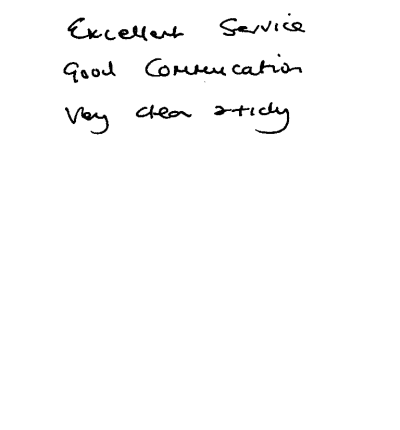 Excellent Service
Good Commucation
Very clean & tidy